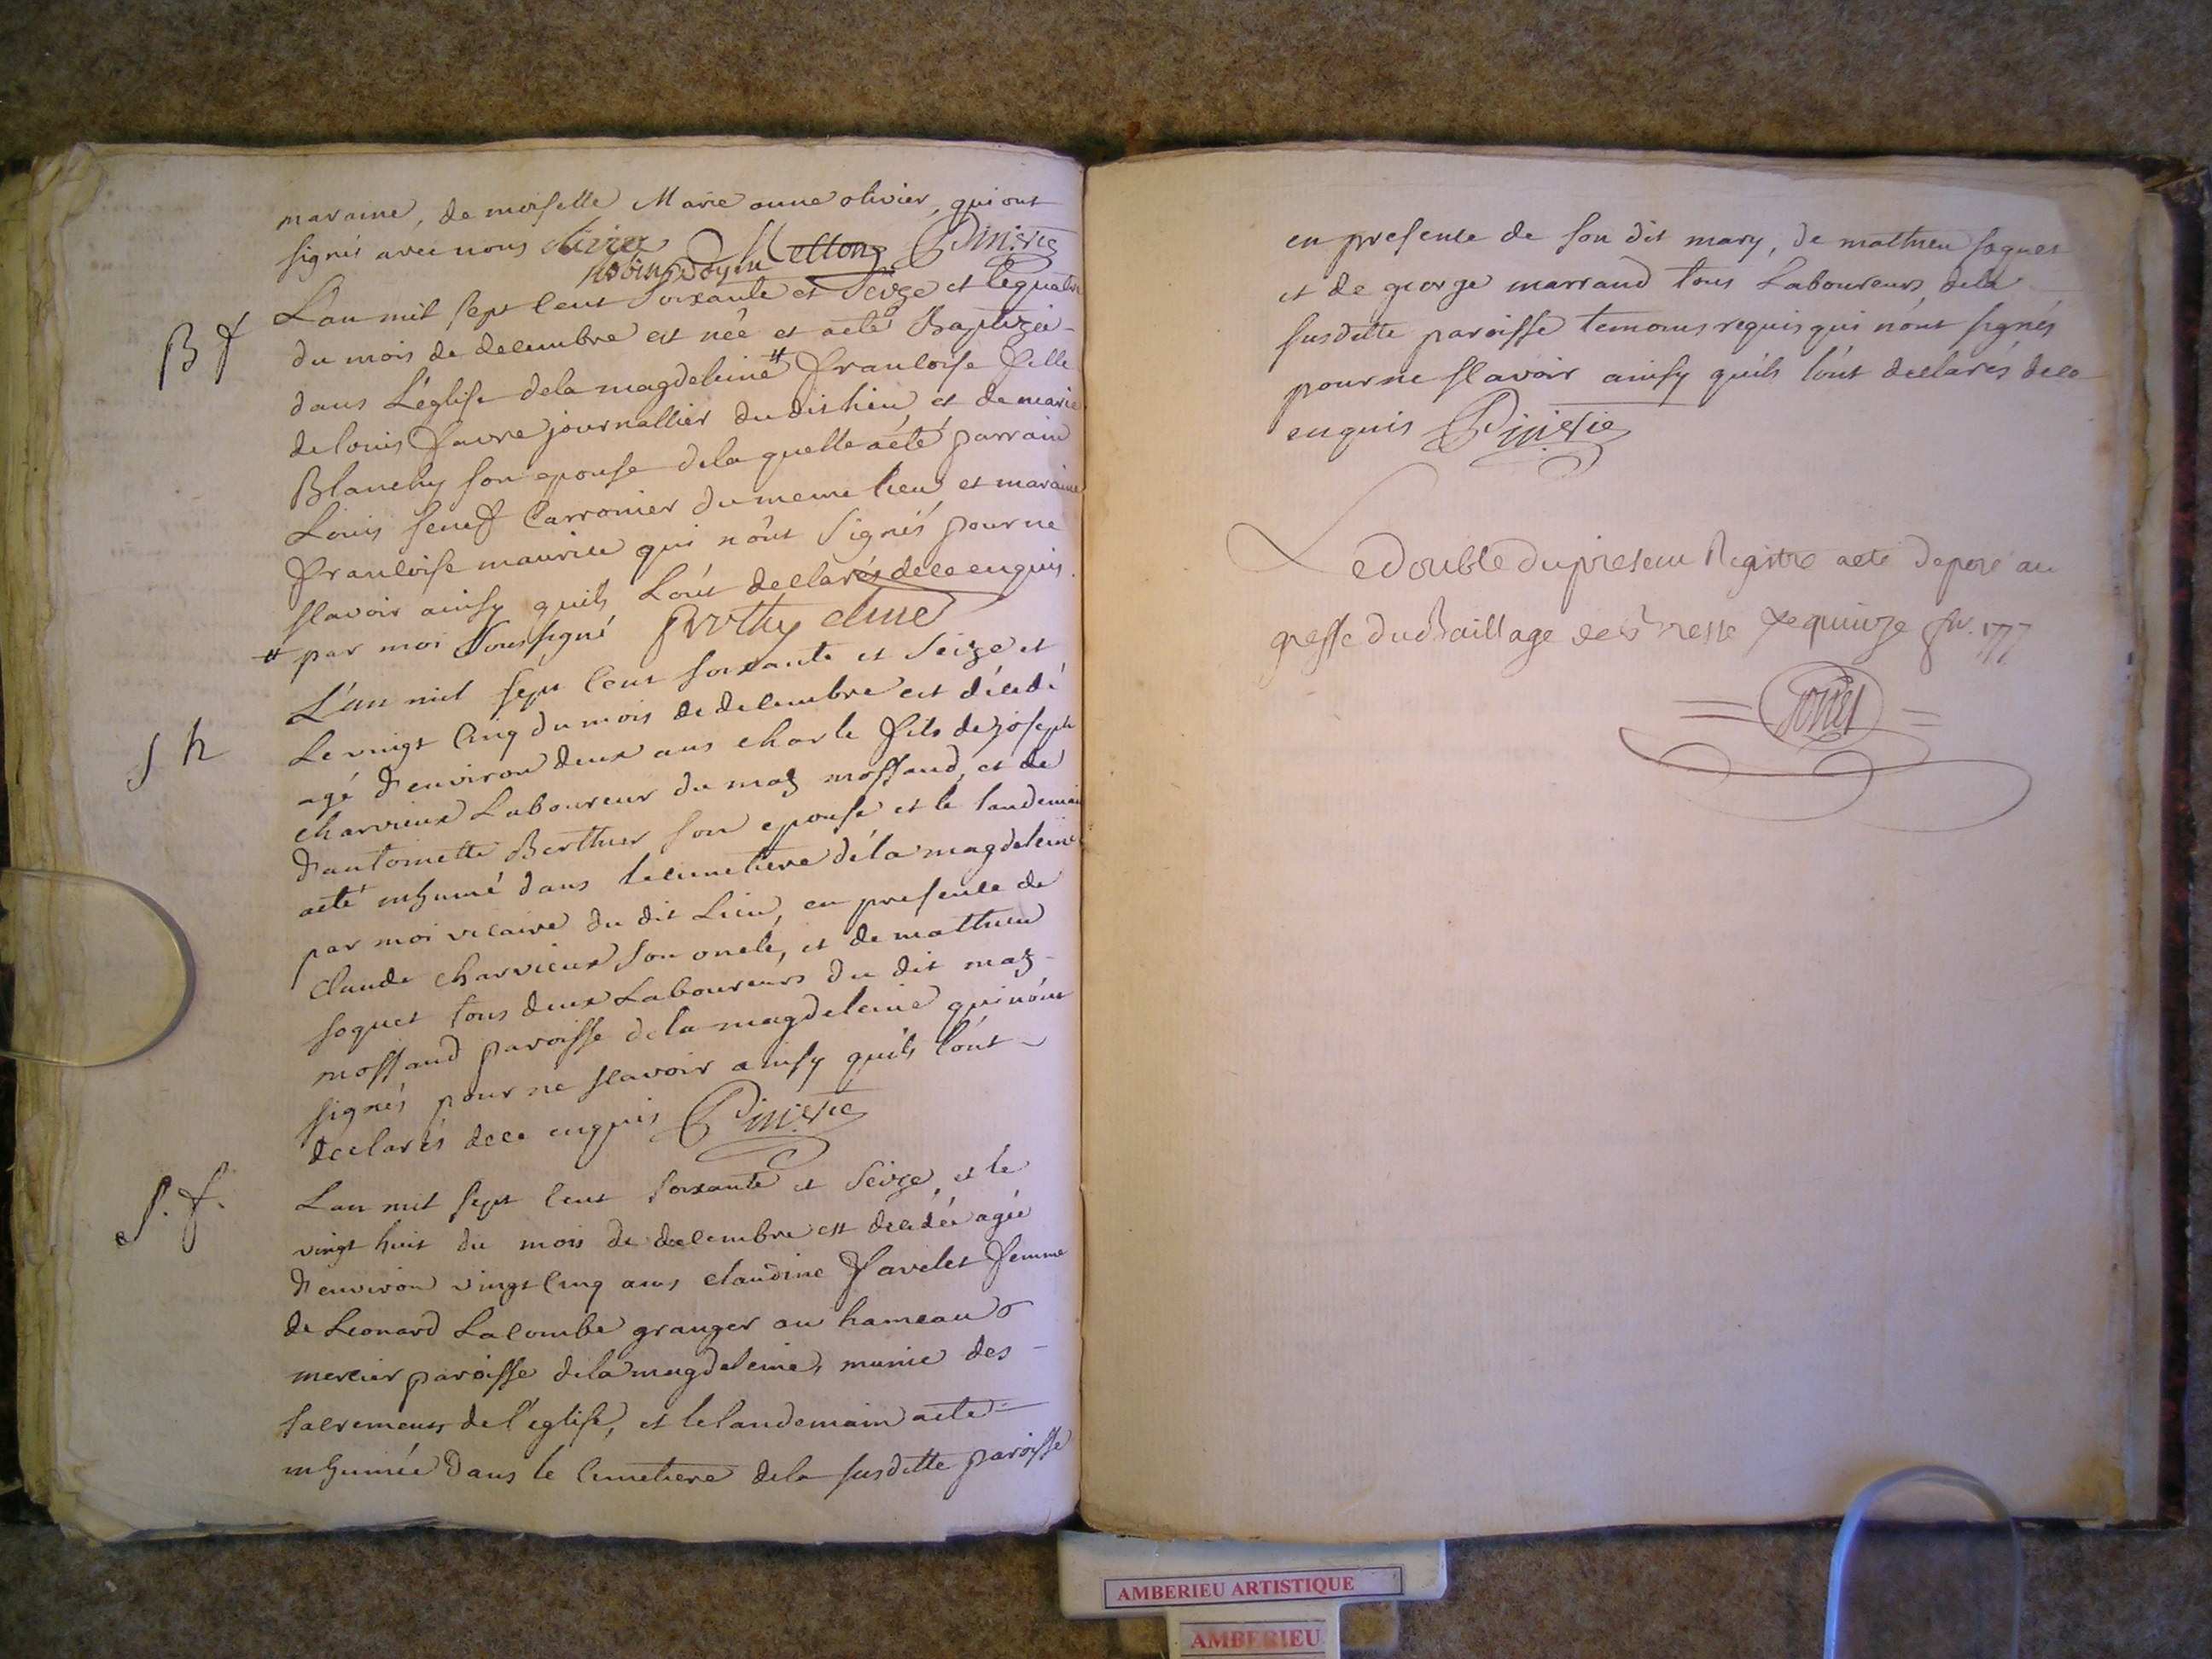 maraine, demoiselle Marie anne olivier, qui ont
signés avec nous olivier
robin doyen
B f
L'an mil sept cent soixante et seize et le quatre
du mois de decembre est née et aeté Baptizée
dans L'église dela magdeleine # francoise fille
de louis favre journallier du dit lieu, et de marie
Blanchy son epouse dela quelle aeté parrain
Louis seneff Carronier du meme lieu et maraine
francoise maurice qui n'ont signés pour ne
scavoir ainsy quils L'ont declarés dece enquis
# par moi soussigné
S h
L'an mil sept cent soixante et seize et
Le vingt cinq du mois de decembre est décédé
agé d'environ deux ans charle fils de joseph
charvieux Laboureur du mas mossand, et de
d'antoinette Berthier son epouse et le landemain
aeté inhumé dans le cimetiere déla magdeleine
par moi vicaire du dit Lieu, en presence de
claude charvieux son oncle, et de mathieu
soquet tous deux Laboureurs du dit mas
mossand paroisse dela magdeleine qui n'ont
signés pour ne scavoir ainsy quils l'ont
declarés dece enquis
S. f.
L'an mil sept cent soixante et seize, et le
vingt huit du mois de decembre est décédée agée
d'environ vingt cinq ans claudine favelet femme
de Leonard Lacombe granger au hameau
mercier paroisse dela magdeleine, munie des
sacremens de l'eglise, et le landemain aeté
inhumée dans le cimetiere dela susditte paroisse
en presence de son dit mary, de mathieu soquet
et de george marrand tous Laboureurs dela
susditte paroisse temoins requis qui n'ont signés
pour ne scavoir ainsy quils l'ont declarés dece
enquis
Le double du present Registre aeté deposé au
greffe du Baillage de Bresse Le quinze fer. 1777
AMBERIEU ARTISTIQUE
AMBERIEU